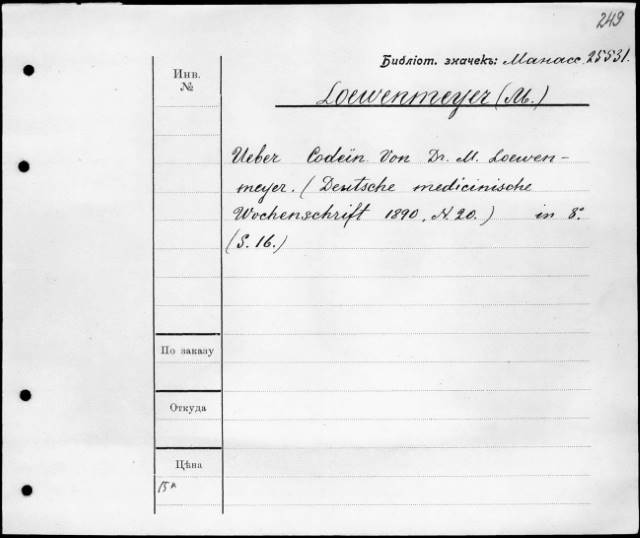 249
Библіот. значекъ: Манасс. 25531.
Инв.
№
Loewenmeyer (M.)
Ueber Codeïn. Von Dr. M. Loewen-
meyer. (Deutsche medicinische
Wochenschrift 1890, N. 20.) in 8º.
(S. 16.)
По заказу
Откуда
Цѣна